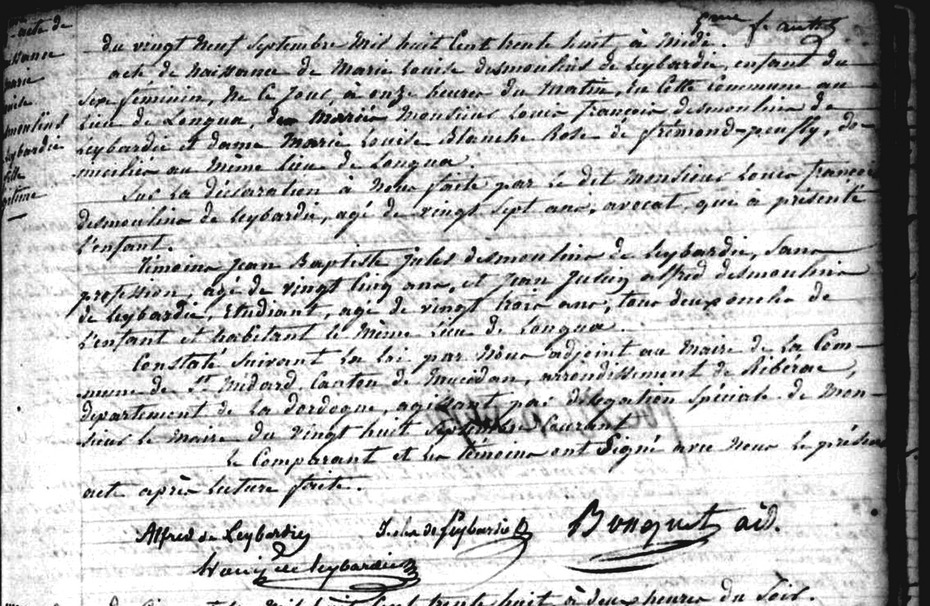 acte de
naissance
marie
louise
desmoulins
Leybardie
fille
légitime
5eme f.
du vingt neuf septembre mil huit cent trente huit, à midi.
acte de naissance de Marie Louise desmoulins de Leybardie, enfant du
sexe féminin, né ce jour, à onze heures du matin, en cette commune au
lieu de Longua, de mariés monsieur Louis françois desmoulins de
Leybardie et dame marie Louise Blanche Rose de frémond-peufly, do-
miciliés au même lieu de Longua
sur la déclaration à nous faite par le dit monsieur Louis françois
desmoulins de Leybardie, agé de vingt sept ans, avocat, qui à présenté
l'enfant.
Témoins Jean Baptiste jules desmoulins de Leybardie, sans
profession, agé de vingt cinq ans, et Jean julien alfred desmoulins
de Leybardie, Etudiant, agé de vingt trois ans, tous deux oncles de
l'enfant et habitant le même lieu de Longua.
Constaté suivant la loi par nous adjoint au maire de la Com-
mune de St médard Canton de mucidan, arrondissement de Ribérac,
département de la dordogne, agissant par délégation spéciale de mon-
sieur le maire du vingt huit septembre courant
le comparant et les témoins ont signé avec nous le présent
acte après lecture faite.
Alfred de Leybardie Jules de Leybardie Bousquet adj.
Louis de Leybardie
mil huit cent trente huit à deux heures du soir.